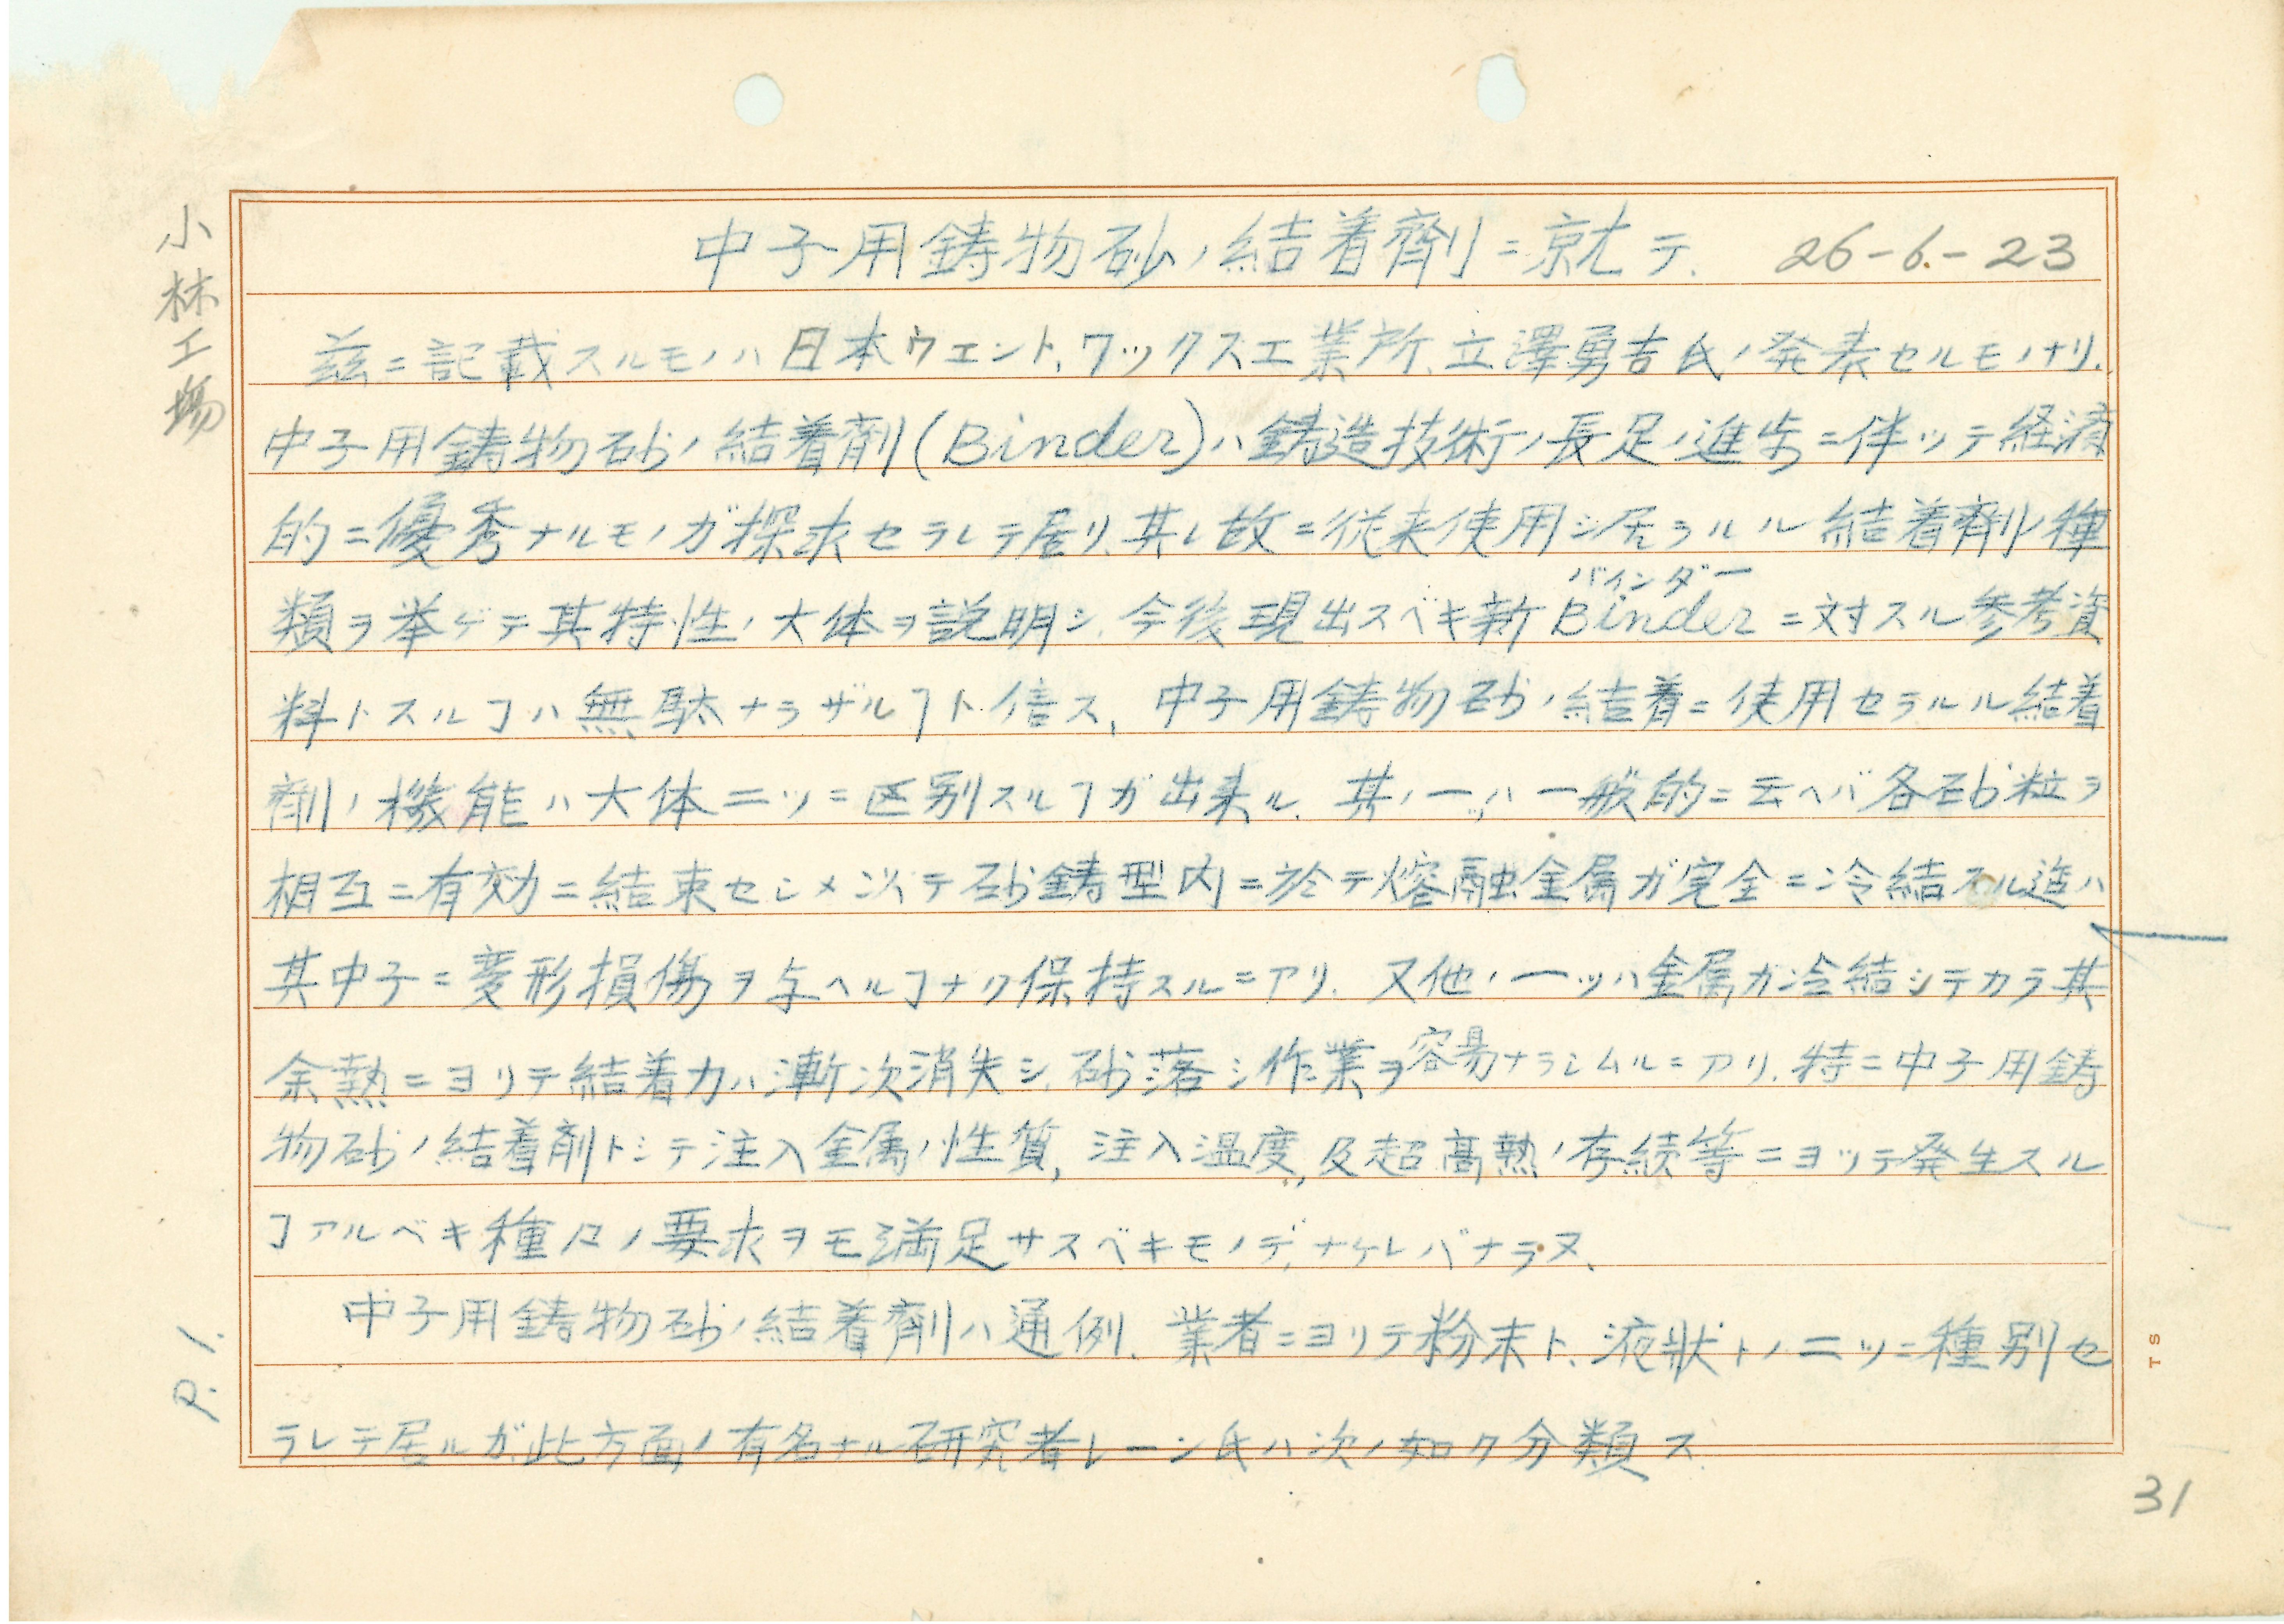 小林工場
中子用鋳物砂ノ結着剤ニ就テ. 26-6-23
茲ニ記載スルモノハ日本ウエント、ワックス工業所、立澤勇吉氏ノ発表セルモノナリ.
中子用鋳物砂ノ結着剤(Binder)ハ鋳造技術ノ長足ノ進歩ニ伴ッテ経済
的ニ優秀ナルモノガ探求セラレテ居リ、其レ故ニ従来使用シ居ラルル結着剤ノ種
類ヲ挙ゲテ其特性ノ大体ヲ説明シ、今後現出スベキ新Binderニ対スル参考資
バインダー
料トスルヿハ無駄ナラザルヿト信ス、中子用鋳物砂ノ結着ニ使用セラルル結着
剤ノ機能ハ大体二ツニ区別スルヿガ出来ル、其ノ一ツハ一般的ニ云ヘバ各砂粒ヲ
相互ニ有効ニ結束セシメ次テ砂鋳型内ニ於テ熔融金属ガ完全ニ冷結スル迄ハ
其中子ニ変形損傷ヲ与ヘルヿナク保持スルニアリ、又他ノ一ッハ金属ガ冷結シテカラ其
余熱ニヨリテ結着力ハ漸次消失シ、砂落シ作業ヲ容易ナラシムルニアリ、特ニ中子用鋳
物砂ノ結着剤トシテ注入金属ノ性質、注入温度、及超高熱ノ存続等ニヨッテ発生スル
ヿアルベキ種々ノ要求ヲモ満足サスベキモノデナケレバナラヌ、
中子用鋳物砂ノ結着剤ハ通例、業者ニヨリテ粉末ト、液状トノ二ツニ種別セ
ラレテ居ルガ此方面ノ有名ナル研究者レーン氏ハ次ノ如ク分類ス
P. 1.
TS
31